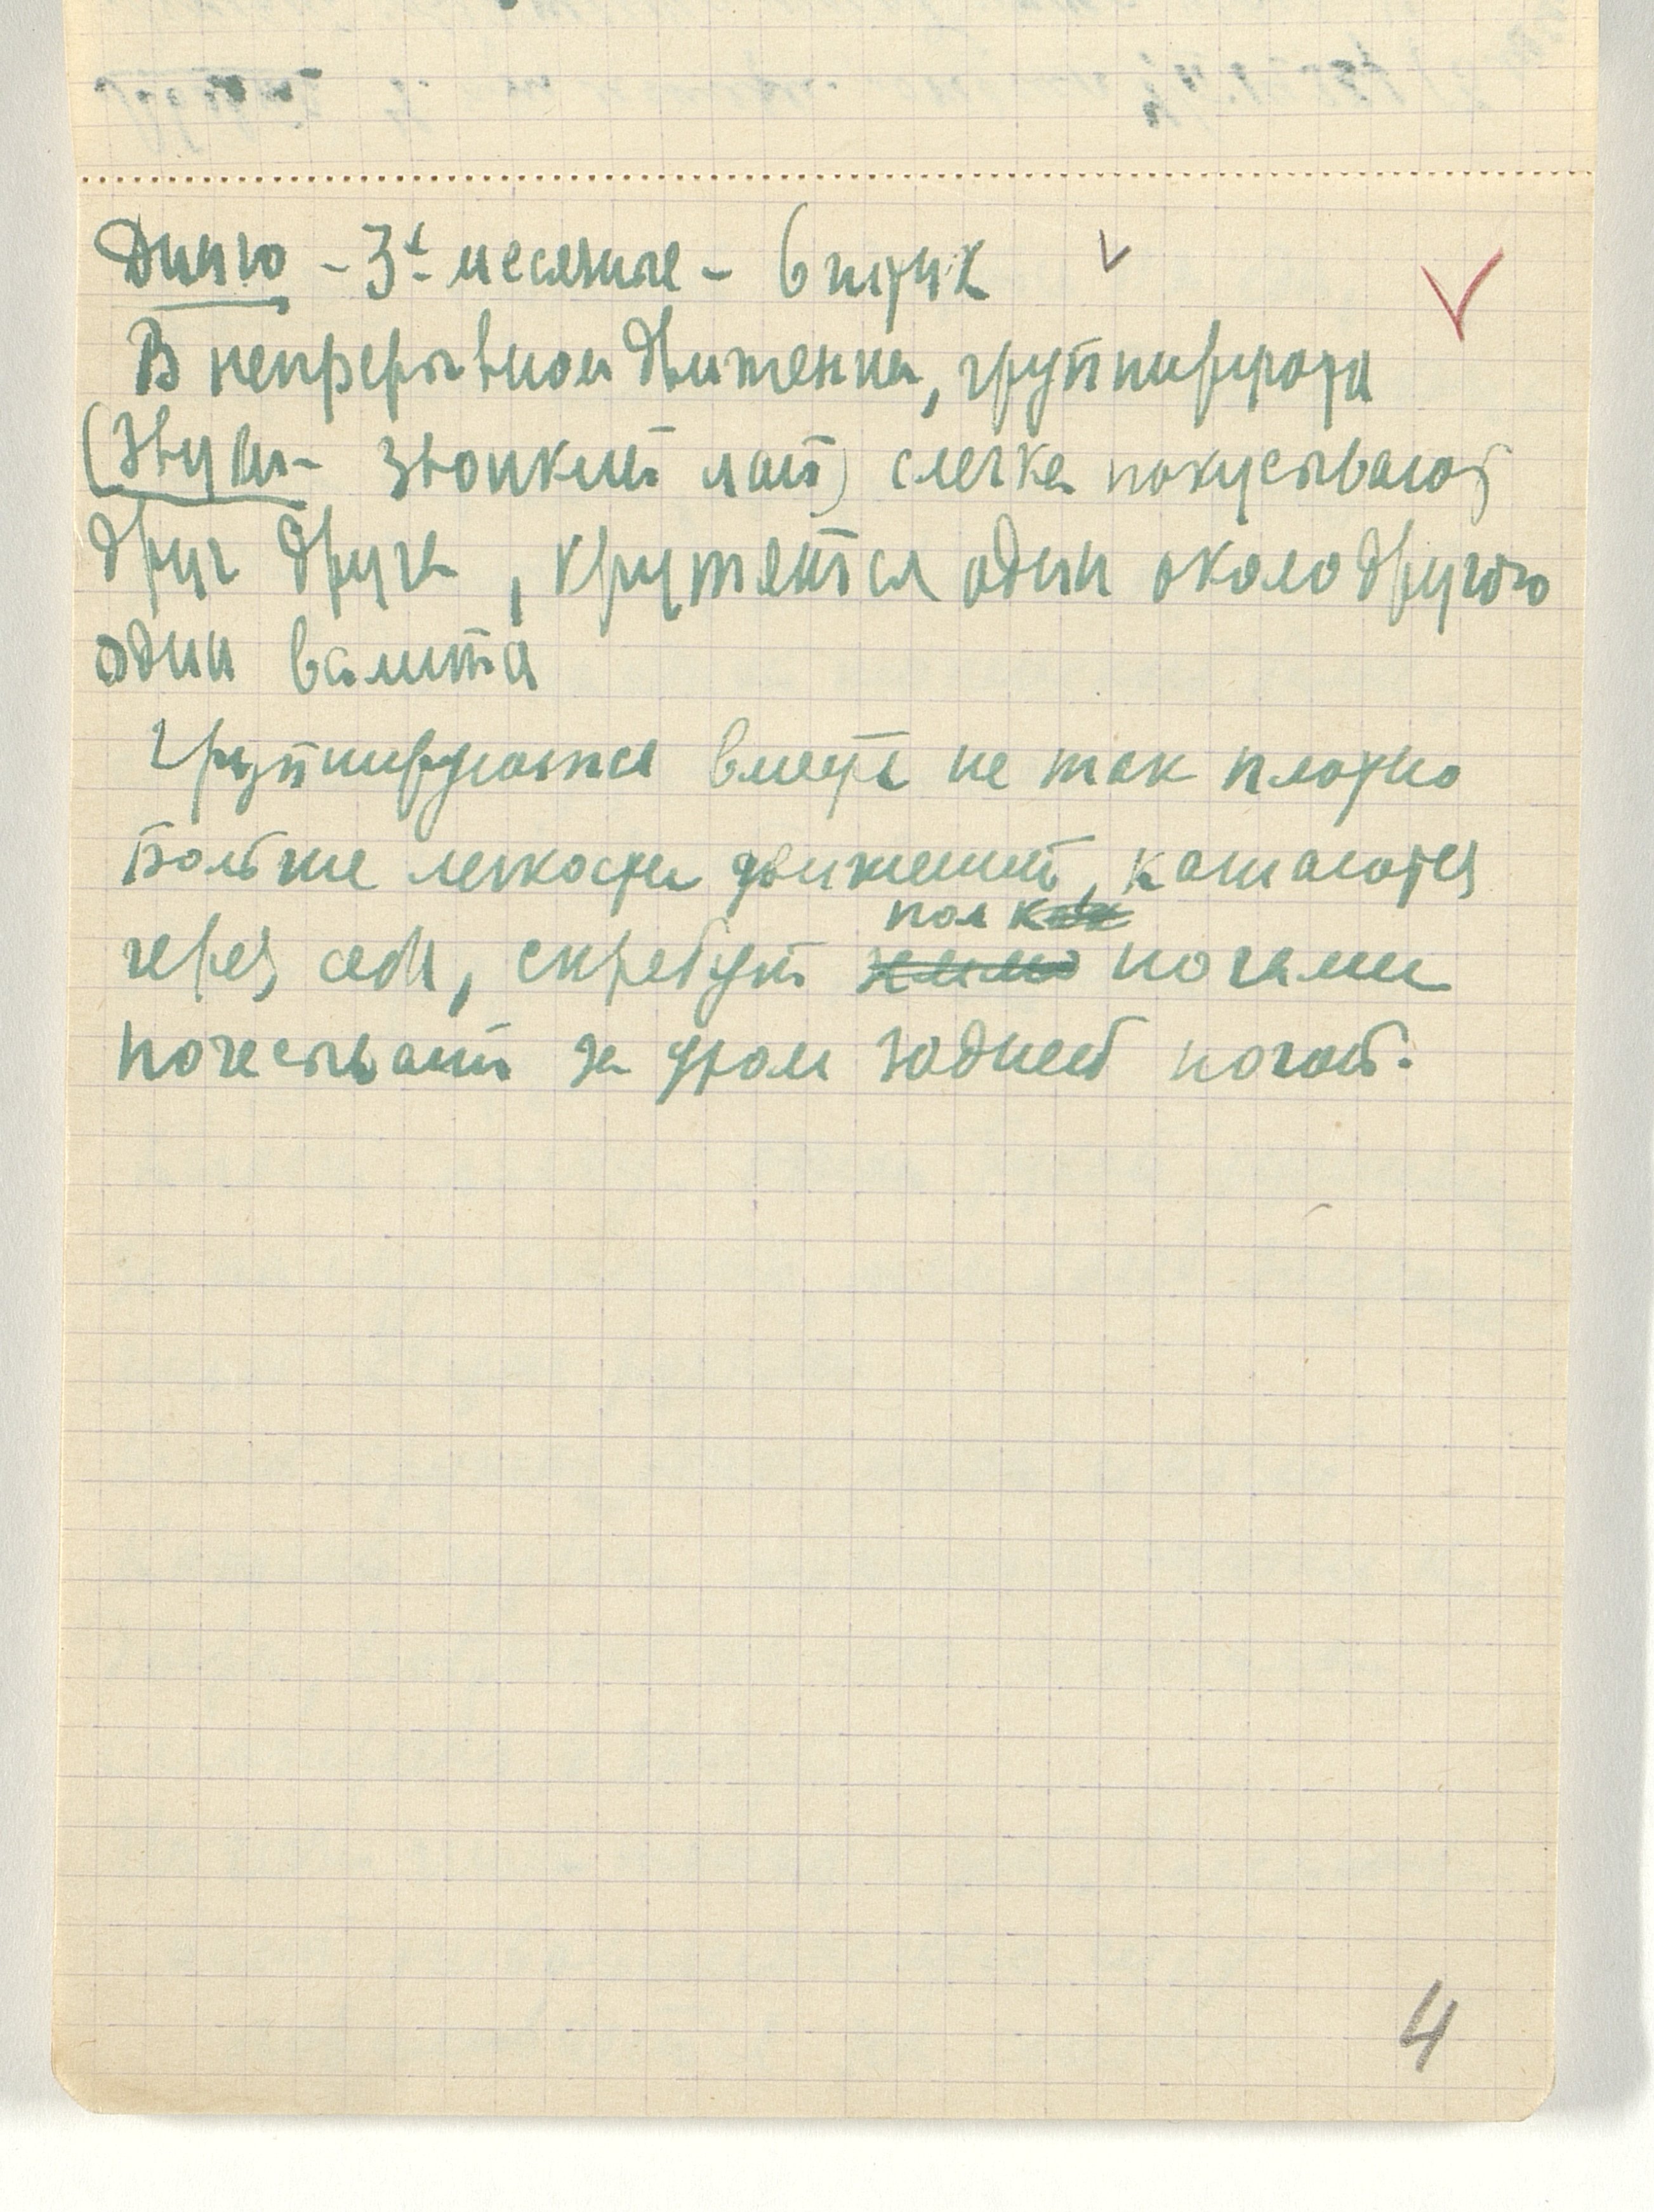 Динго - 3х месячные - 6 штук
В непрерывном движении, группируются
(Звуки - звонкий лай) слегка покусывают
друг друга, кружатся один около другого
один валится
Группируются вместе не так плотно
Больше легкости движений, катаются
через себя, скребут пол ногами
почесывают за ухом задней ногой.
4